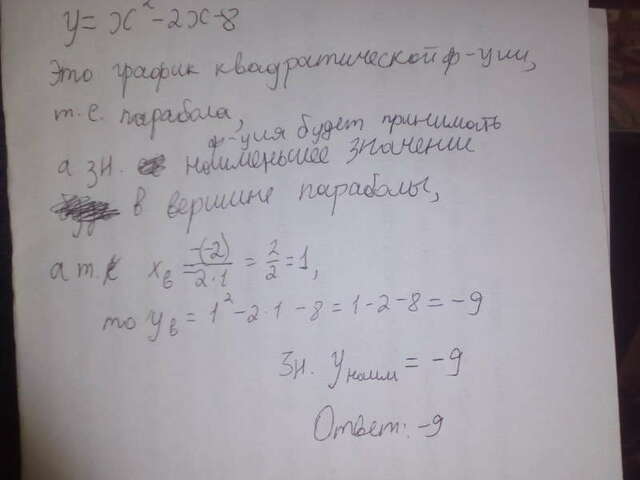 y = x² - 2x - 8
Это график квадратической ф-уии,
т.е. парабола,
ф-уия будет принимать
а зн. наименьшее значении
в вершине параболы,
а т.к x_в = -(-2)/2·1 = 2/2 = 1,
то y_в = 1² - 2·1 - 8 = 1 - 2 - 8 = -9
Зн. y наим = -9
Ответ: -9